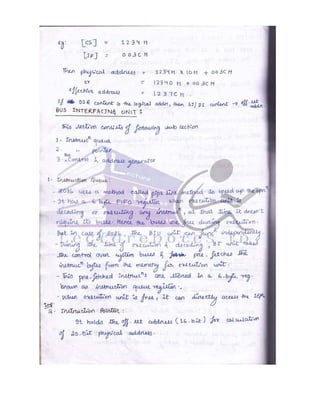 eg: [CS] = 1234 H
[IP] = 003C H
Then physical address = 1234H X 10H + 003C H
or = 12340 H + 003C H
effective address = 1237C H
If DS is content is the logical addr, then SI/DI content → off-set addr
BUS INTERFACING UNIT :
This section consists of following sub section
1- Instrucⁿ queue
2- " pointer
3- Control & address generator
1- Instruction Queue:
- 8086 uses a method called pipe line method to speed up the
- It has a 6 byte FIFO register. When execution unit is
decoding or executing any instrucⁿ, at that time it doesn't
require its buses. Hence the buses are free during execution.
But in case of 8086, the BIU unit can work independently
- During the time of execution & decoding, BI unit takes
the control over system buses & pre-fetches the
instrucⁿ bytes from the memory for execution unit.
- This pre-fetched instrucⁿˢ are stored in a 6-byte reg.
known as instruction queue register.
- When execution unit is free, it can directly access the
2- Instruction Pointer:
It holds the off set address (16-bit) for calculation
of 20-bit physical address.